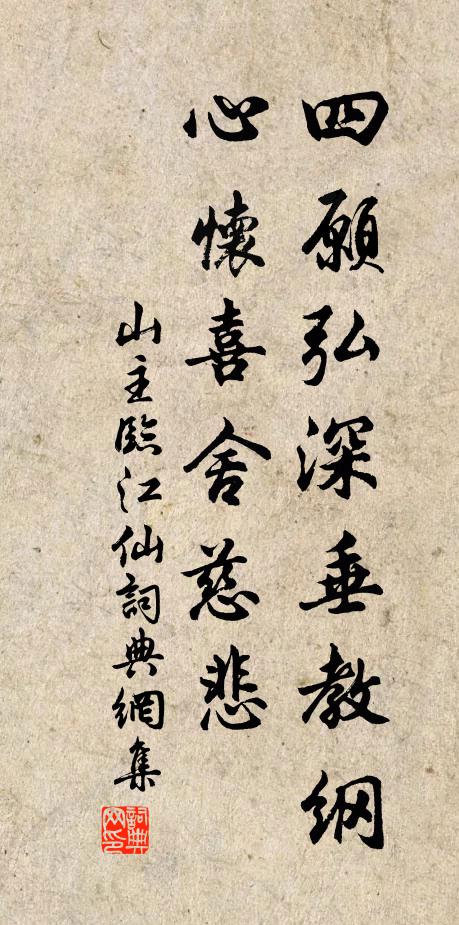 四願弘深垂教纲
心懷喜舍慈悲
山主臨江仙詞典網集
詞典网印